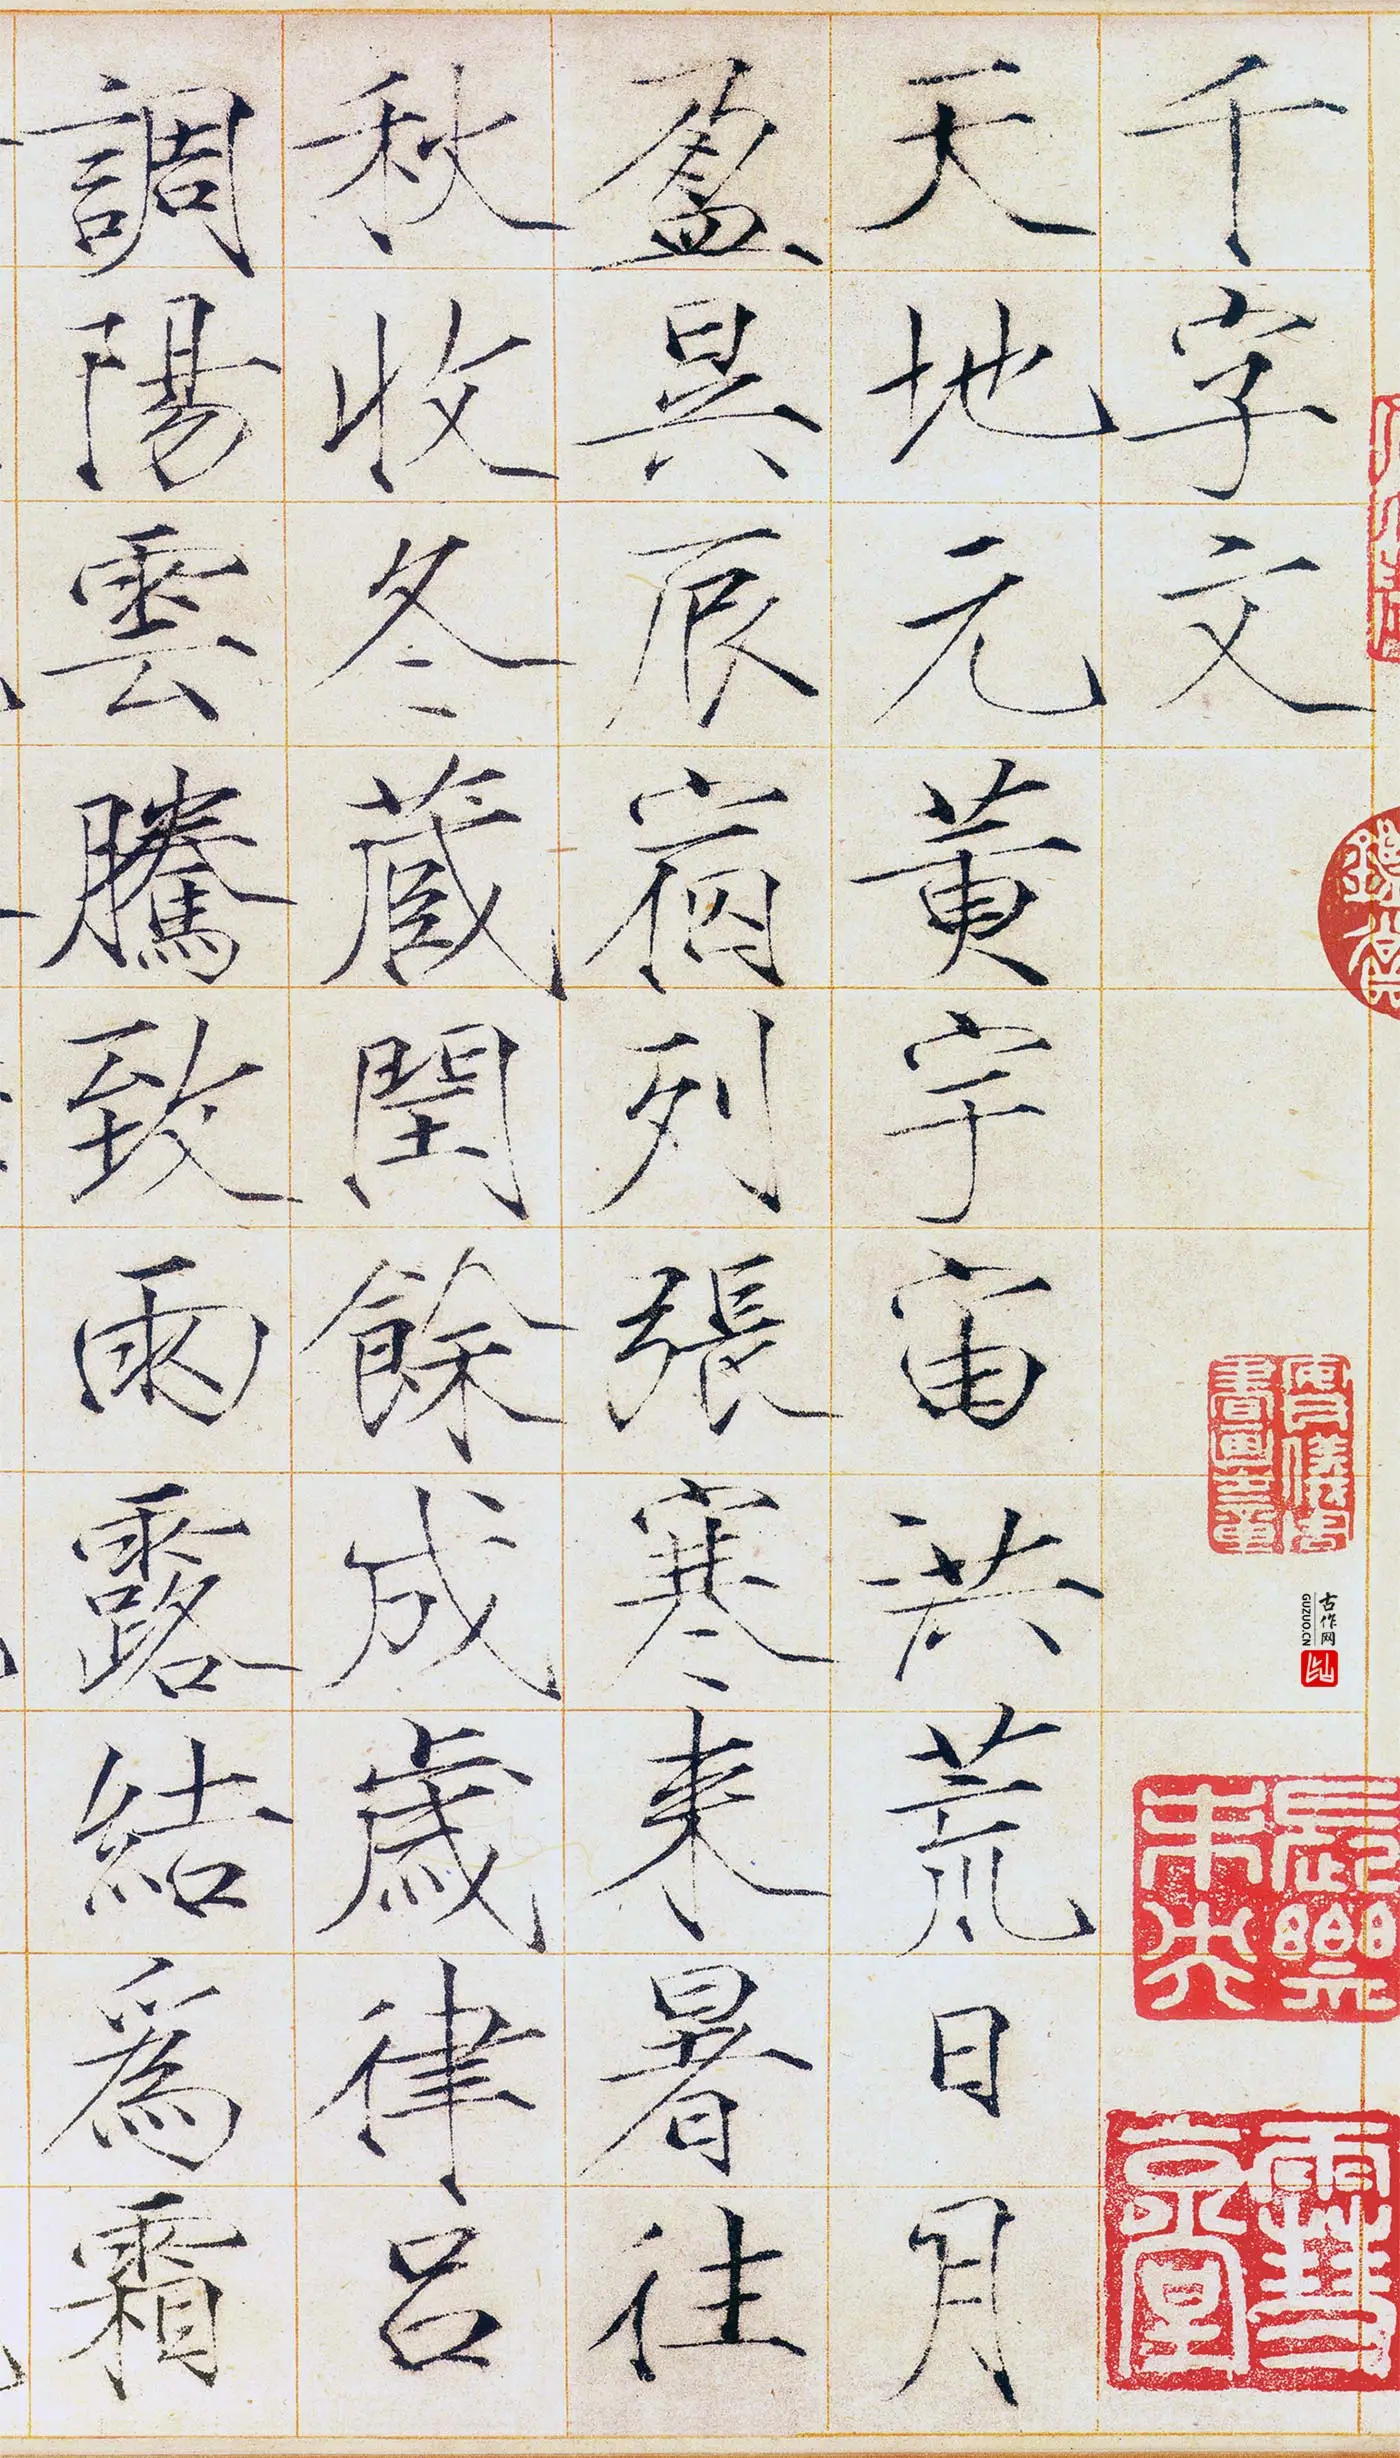 千字文
天地元黄宇宙洪荒日月
盈昃辰宿列張寒来暑往
秋收冬藏閏餘成歲律吕
調陽雲騰致雨露結爲霜
古作网
GUZUO.CN
長樂未央